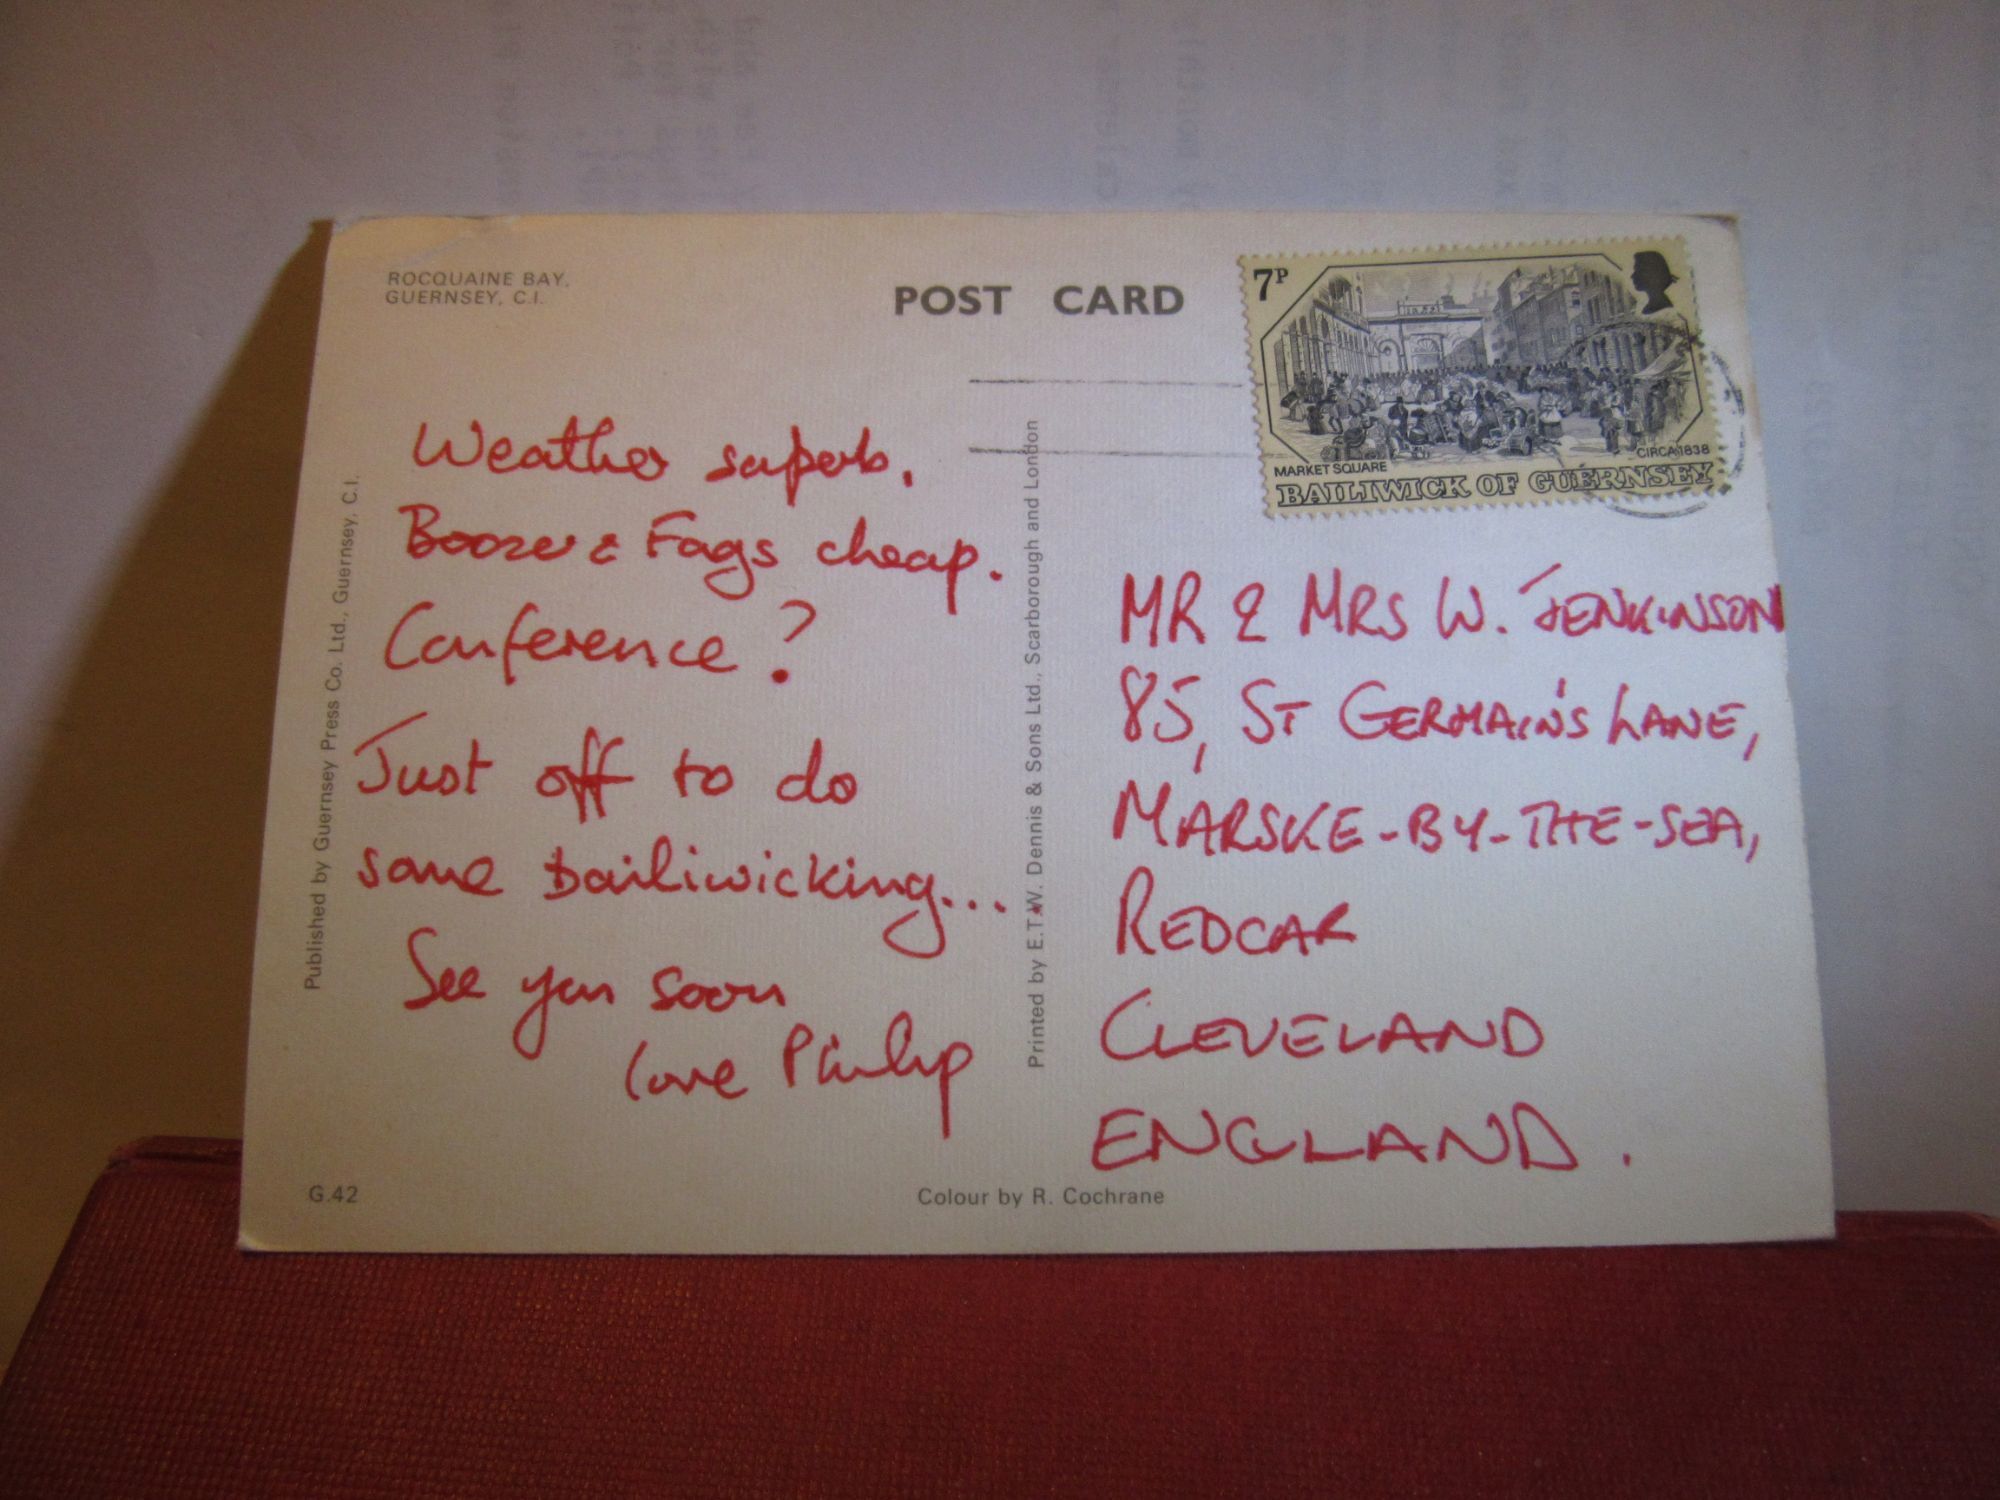 ROCQUAINE BAY,
GUERNSEY, C.I.
POST CARD
7P
MARKET SQUARE
CIRCA 1838
BAILIWICK OF GUERNSEY
Weather superb.
Booze & Fags cheap.
Conference?
Just off to do
some bailiwicking...
See you soon
love Philip
Published by Guernsey Press Co. Ltd., Guernsey, C.I.
Printed by E.T.W. Dennis & Sons Ltd., Scarborough and London
MR & MRS W. JENKINSON
85, ST GERMAIN'S LANE,
MARSKE-BY-THE-SEA,
REDCAR
CLEVELAND
ENGLAND.
G.42
Colour by R. Cochrane